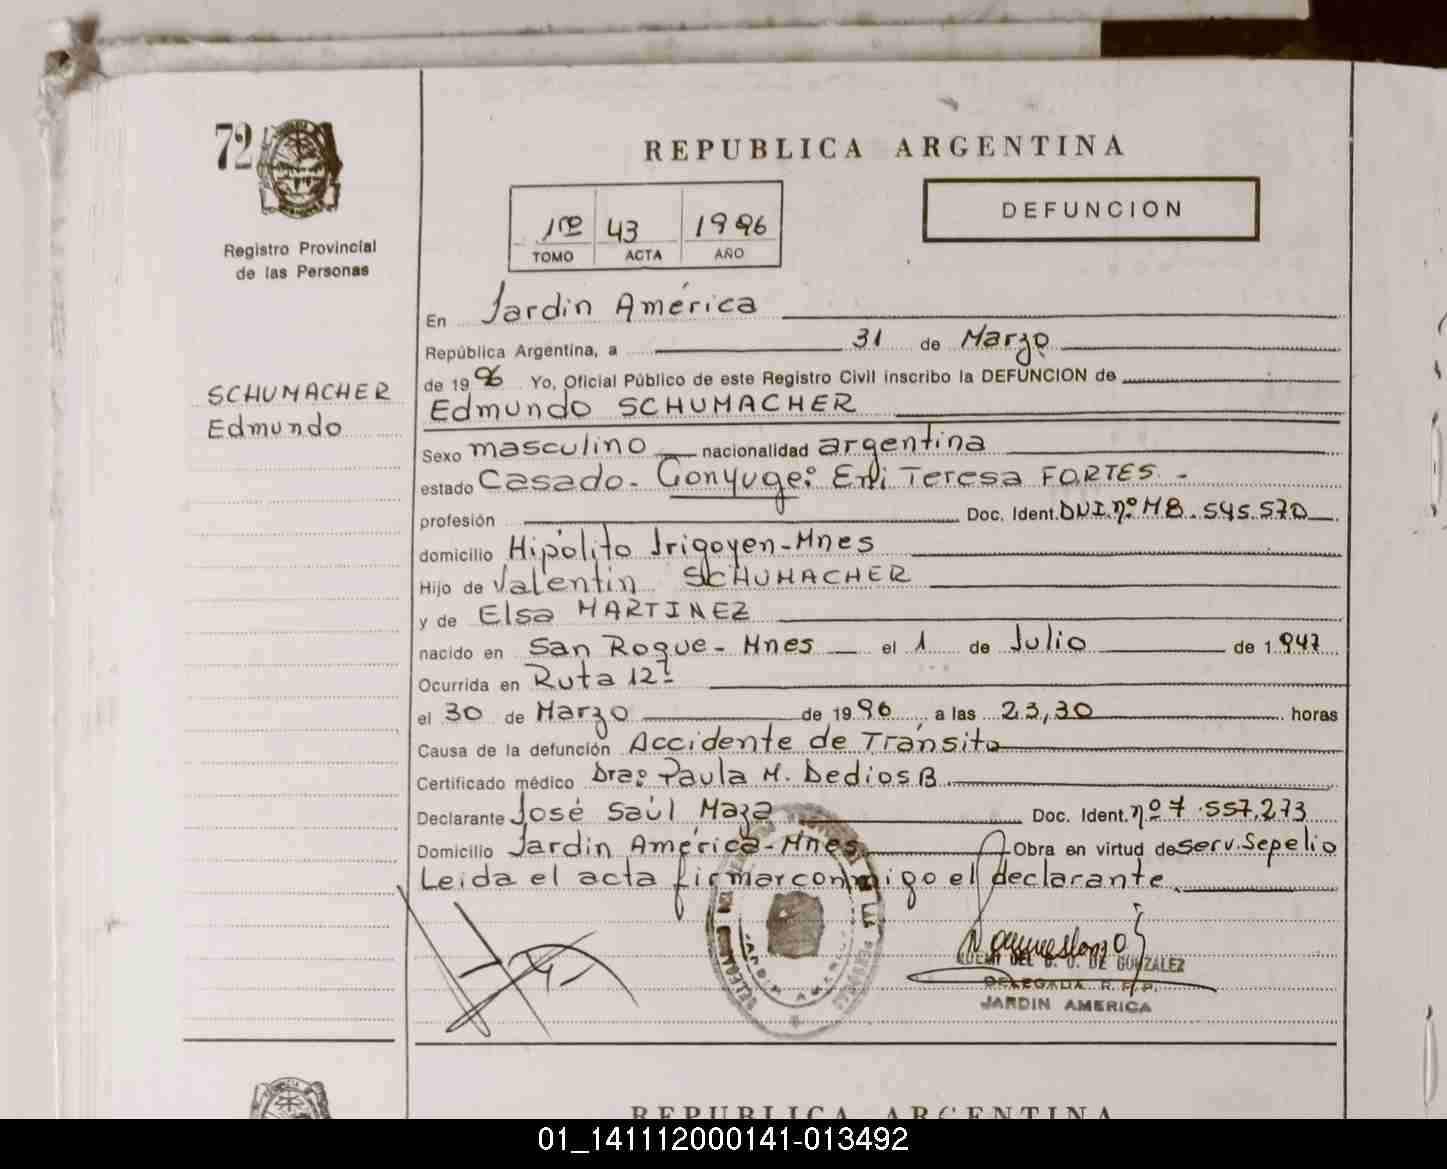 72
Registro Provincial
de las Personas
REPUBLICA ARGENTINA
1ro 43 1996
TOMO ACTA AÑO
DEFUNCION
SCHUMACHER
Edmundo
En Jardin América
República Argentina, a 31 de Marzo
de 1996 Yo, Oficial Público de este Registro Civil inscribo la DEFUNCION de
Edmundo SCHUMACHER
Sexo masculino nacionalidad argentina
estado Casado. Conyuge: Eni Teresa FORTES. -
profesión Doc. Ident. DNI. nº M8. 545.570
domicilio Hipólito Irigoyen-Mnes
Hijo de Valentin SCHUMACHER
y de Elsa MARTINEZ
nacido en San Roque - Mnes el 1 de Julio de 1.947
Ocurrida en Ruta 12.
el 30 de Marzo de 1996, a las 23,30 horas
Causa de la defunción Accidente de Tránsito
Certificado médico Dra: Paula M. Dedios B.
Declarante José Saúl Maza Doc. Ident. nº 7.557.273
Domicilio Jardin América-Mnes Obra en virtud de serv. Sepelio
Leida el acta firmar conmigo el declarante
JARDIN AMERICA
DEL G. D. DE GONZALEZ
DELEGADA R.P.P.
JARDIN AMERICA
REPUBLICA ARGENTINA
01_141112000141-013492